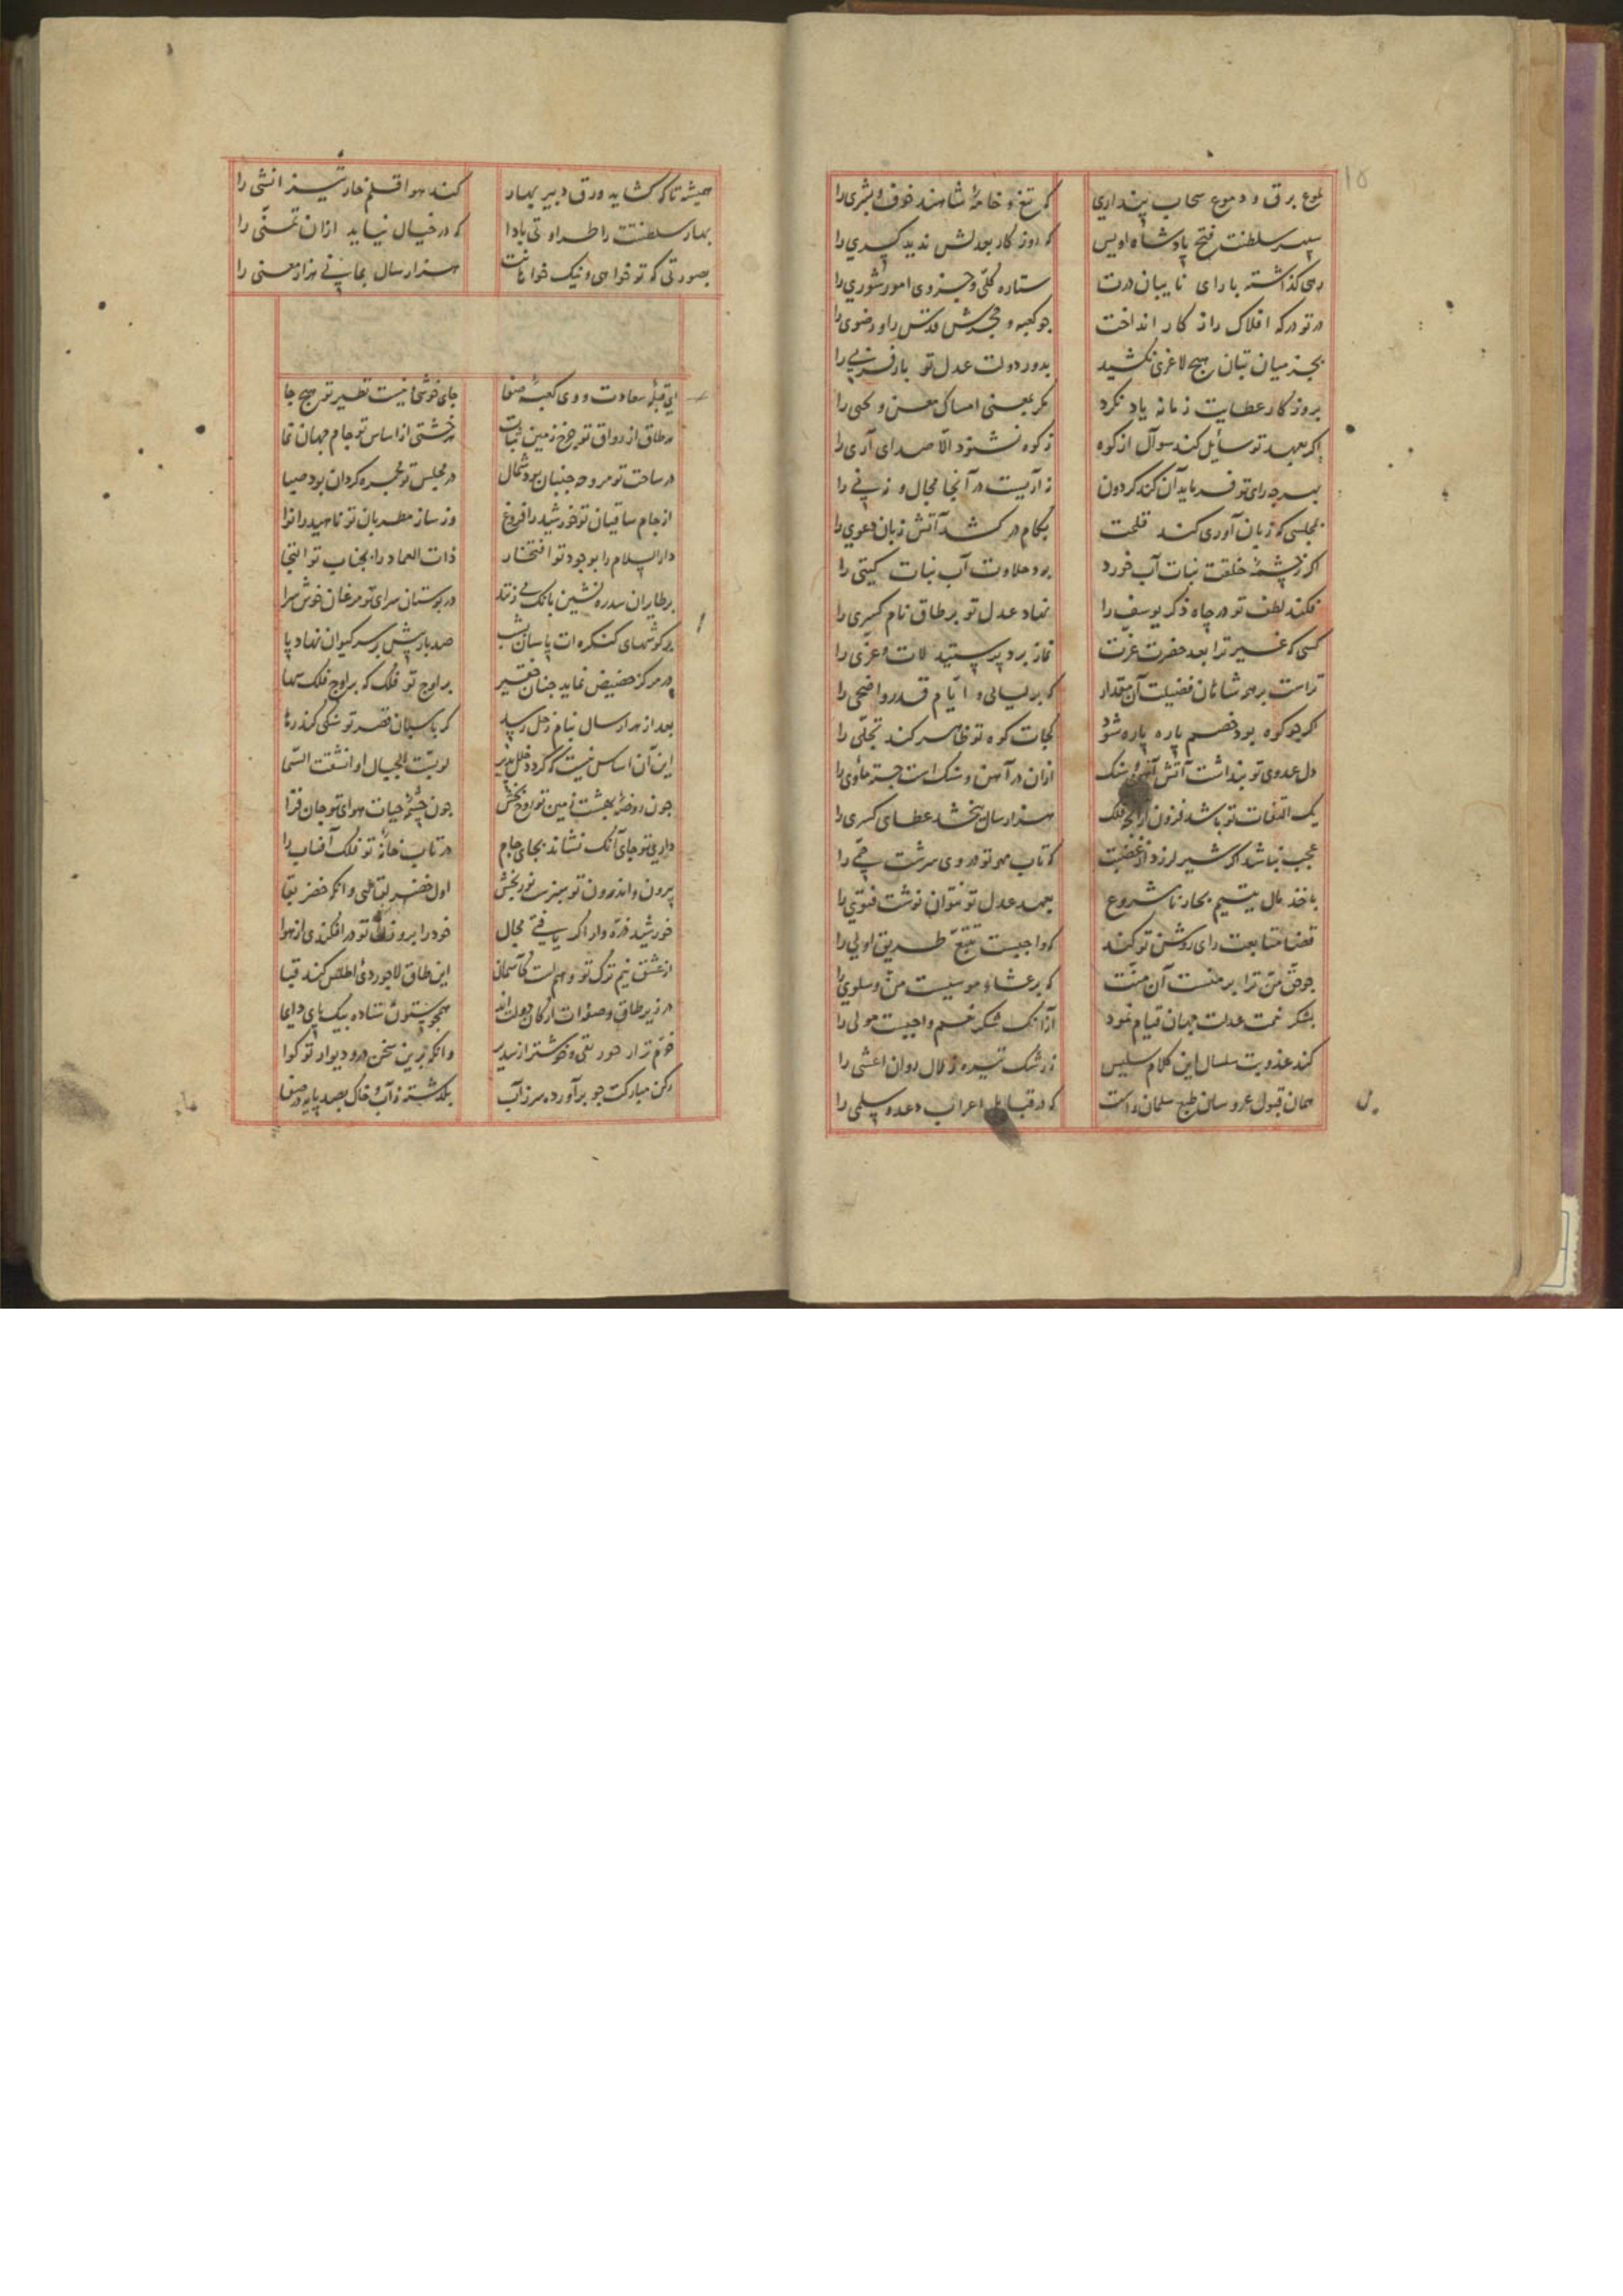 لموع برق و دموع سحاب پنداری که تیغ و خامهٔ شاهند خوف و بشری را
سپهر سلطنت فتح پادشاه اویس که روزگار بعدلش ندید کسری را
رهی گذاشته با رای نایبان درت ستاره کلّی و جزوی امور شوری را
در تو درکه افلاک را ز کار انداخت جو کعبه و حجرش قدس را و رضوی را
بجز میان بتان هیچ لاغری نکشید بدور دولت عدل تو بار فربی را
بروزگار عطایت زمانه یاد نکرد مکر بمعنی امساک معن و یحیی را
اکر بعهد تو سائل کند سوآل از کوه ز کوه نشنود الّا صدای آری را
بهرچه رای تو فرماید آن کند کردون ز آریت در آنجا مجال و زپی نی را
بمجلسی که زبان آوری کند قلمت بکام در کشد آتش زبان دعوی را
اکر ز چشمهٔ خلقت نبات آب خورد برد حلاوت آب نبات کیتی را
فکند لطف تو در چاه ذکر یوسف را نهاد عدل تو بر طاق نام کسری را
کسی که غیر ترا بعد حضرت عزت نماز برد پرستید لات و عزّی را
تراست بر همه شاهان فضیلت آن مقدار که بر لیالی و ایّام قدر و اضحی را
اکر جو کوه بود خصم پاره پاره شود کجات کوه تو ظاهر کند تجلّی را
دل عدوی تو پنداشت آتش آهن و سنک ازان در آهن و سنک است جسته مأوی را
یک التفات تو باشد فزون ز آنچه فلک هزار سال ببخشد عطای کسری را
عجب نباشد اکر شیر لرزد از غضبت که تاب مهر تو در وی سرشت حمّی را
باخذ مال یتیم بحار نامشروع بعهد عدل تو نتوان نوشت فتوی را
قضا متابعت رای روشن تو کند که واجبست تتبّع طریق اولی را
جو حق منّ ترا بر منست آن منّت که بر عشاء موسیست منّ و سلوی را
بشکر نعمت عدلت جهان قیام نمود از آنک شکر نعم واجبست مولی را
کند عذوبت سلسال این کلام سلیس ز رشک تیره زلال روان اعشی را
همان قبول عروسان طبع سلمان راست که در قبایل اعراب دعد و سلمی را
همیشه تا که کشاید ورق دبیر بهار کند هوا قلم خار تیز انشی را
بهار سلطنتت را طراوتی بادا که در خیال نیاید ازان تمنّی را
بصورتی که تو خواهی و نیک خواهانت هزار سال بمانی هزار معنی را
ای قبلهٔ سعادت و وی کعبهٔ صفا جای خوشی و نیست نظیر تو هیچ جا
هر طاق از رواق تو چرخ زمین ثبات هر خشتی از اساس تو جام جهان نما
در ساحت تو مروحه جنبان بود شمال در مجلس تو مجمره کردان بود صبا
از جام ساقیان تو خورشید را فروغ وز ساز مطربان تو ناهید را نوا
دار السلام را بوجود تو افتخار ذات العماد را بجناب تو التجا
بر طایران سدره نشین بانک می زنند در بوستان سرای تو مرغان خوش سرا
بر کوشهای کنکره ات پاسبان بشب صد بار پیش بر سر کیوان نهاد پا
در مرکز حضیض نماید جنان حقیر بر اوج تو فلک که بر اوج فلک سها
بعد از هزار سال ببام زحل رسد کر پاسبان قصر تو سنکی کند رها
این آن اساس نیست که کردد خلل پذیر لو بسّت الجبال او انشقّت السّما
جون روضهٔ بهشت زمین تو روح بخش جون چشمهٔ حیات هوای تو جان فزا
داری تو جای آنک نشاند بجای جام در تاب خانهٔ تو فلک آفتاب را
بیرون و اندرون تو سبزست و نور بخش اول خضر لباسی و آنکه خضر بقا
خورشید ذرّه وار اکر یافتی مجال خود را بروزن تو در افکندی از هوا
از عشق نیم ترک تو وهم است کآسمان این طاق لاجوردی اطلس کند قبا
در زیر طاق صفهٔ ات ارکان دولت اند همچو ستون ستاده بیک پای دایما
خرّم تر از خورنقی و خوشتر از سدیر وانکه برین سخن در و دیوار تو کوا
رکن مبارکت جو برآورده سر ز آب بکذشته ز آب و خاک بصد پایه در صفا